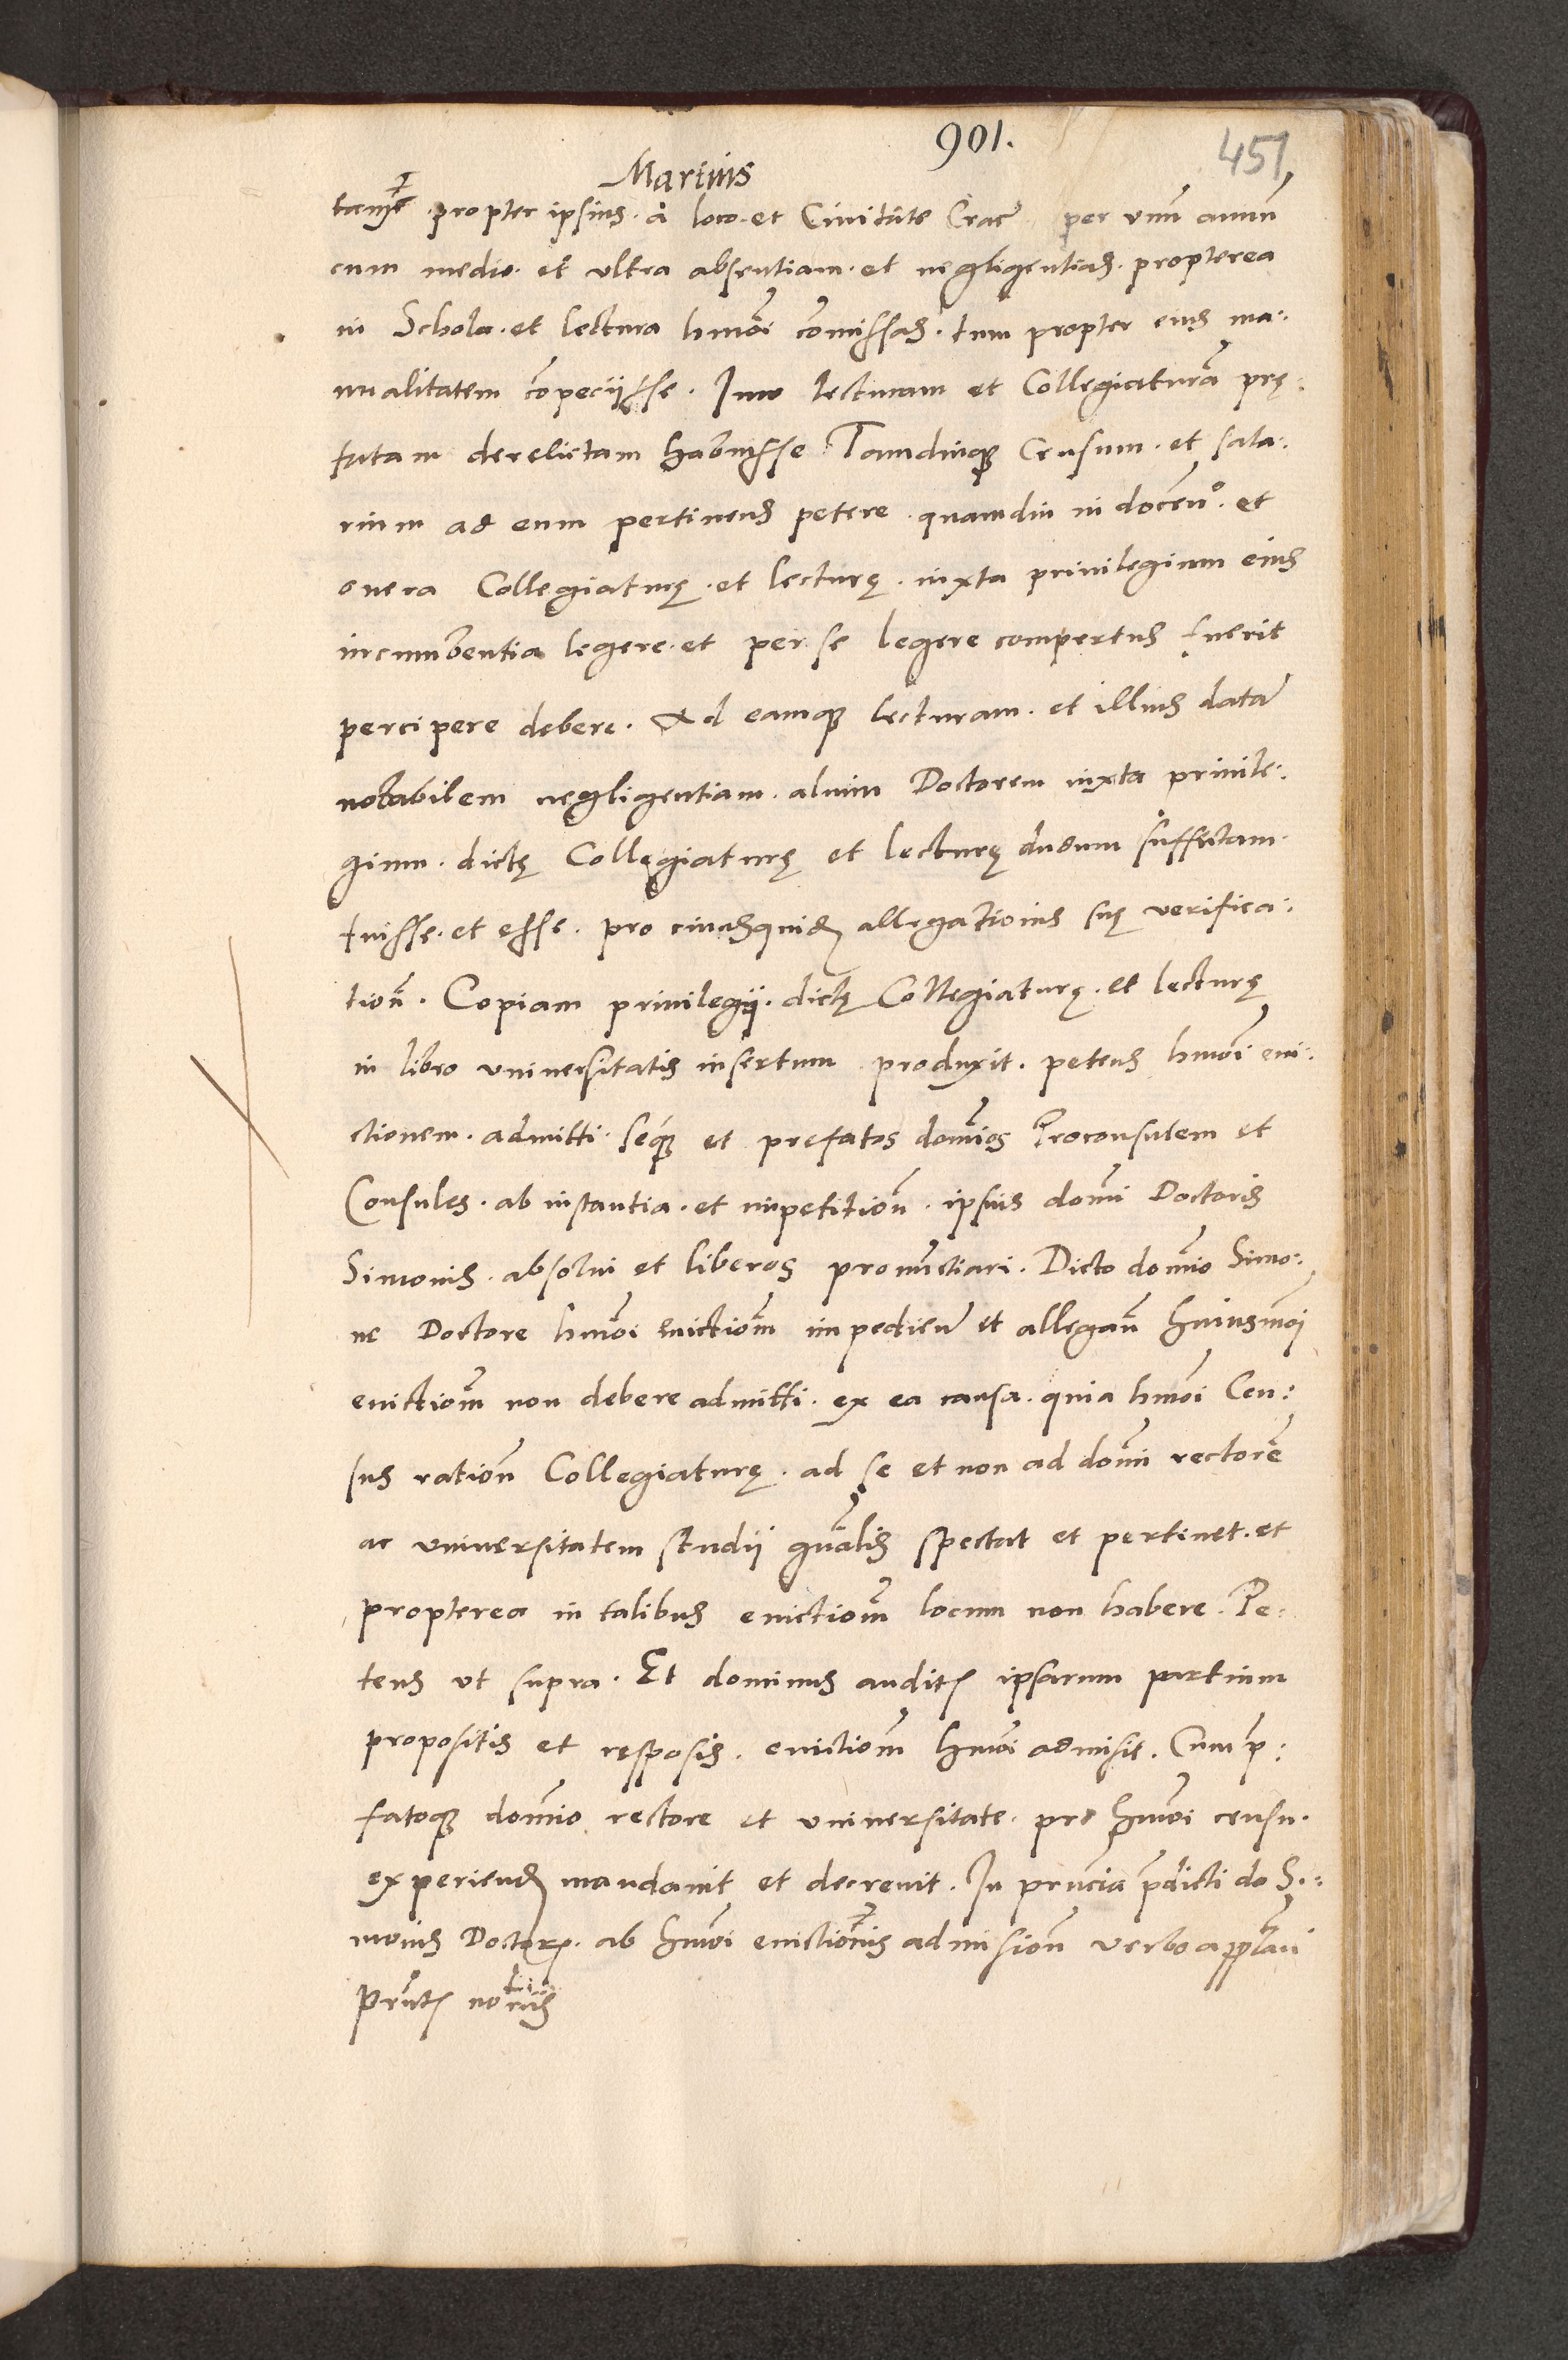 901.
451
Maricius
tamē propter ipsius. à loco et Ciuitate Crac̄ per vnū annū
cum medio. et vltra absentiam. et negligentias. propterea
in Schola. et lectura hmōi cōmissas. tum propter eius ma:
nualitatem cōpeciisse. Imo lecturam et Collegiaturā prę:
fatam derelictam habuisse Tamdiuq3 Censum. et sala:
rium ad eum pertinens petere. quamdiu in docenō. et
onera Collegiaturę. et lecturę. iuxta priuilegium eius
incumbentia legere. et per se legere compertus fuerit
percipere debere. Ad eamq3 lecturam. et illius datā
notabilem negligentiam. alium Doctorem iuxta priuile:
gium. dictę Collegiaturę et lecturę dudum suffectum
fuisse. et esse. pro cuiusquidē allegationis suę verifica:
tionē. Copiam priuilegij. dictę Collegiaturę. et lecturę
in libro vniuersitatis insertum produxit. petens hmōi eui:
ctionem. admitti. seq3 et prefatos domīos Proconsulem et
Consules. ab instantia. et impetitionē. ipsius domī Doctoris
Simonis. absolui et liberos pronunctiari. Dicto domīo Simo:
ne Doctore hmōi euictionem impedienē et allegan̄ huiusmōi
euictionē non debere admitti. ex ea causa. quia hmōi Cen:
sus rationē Collegiaturę. ad se et non ad domī rectorē
ac vniuersitatem studii gn̄alis spectat et pertinet. et
propterea in talibus euictionē locum non habere. Pe:
tens vt supra. Et dominus auditis ipsarum partium
propositis et respōsis. euictionē hmōi admisit. Cum p̄:
fatoq3 domīo rectore et vniuersitate. pro hmōi censu.
experiendū mandauit et decreuit. In prn̄cia p̄dicti do Si:
monis Doctoris. ab hmōi euictionis admissionē verbo appellan̄
Prn̄tis notarijs